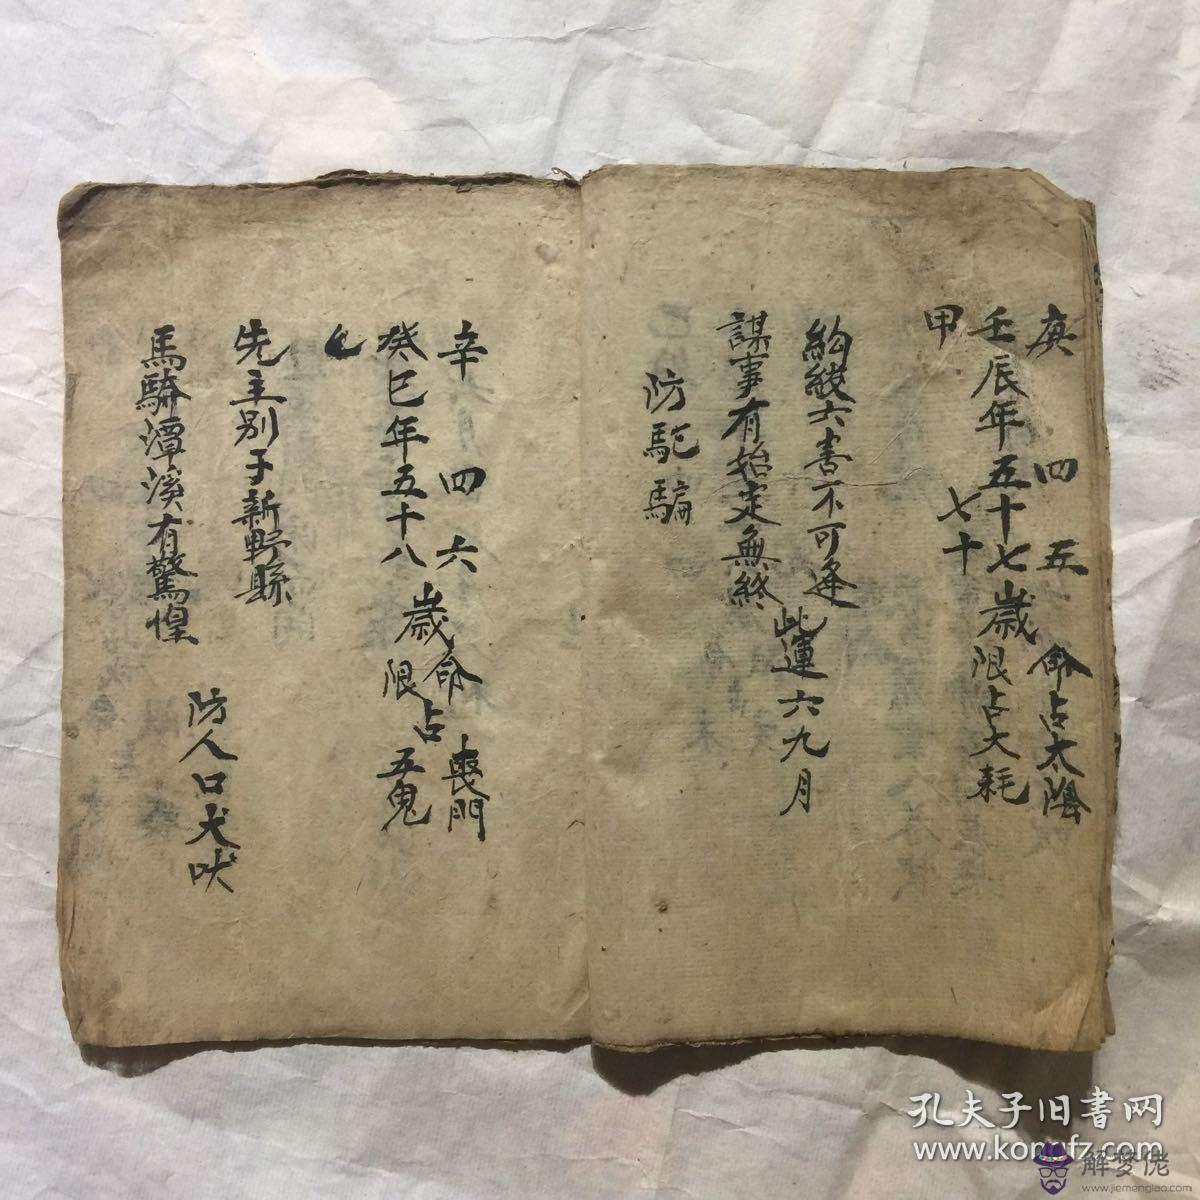 庚 四 五 命占太陰
壬辰年五十七歲限占大耗
甲 七十
六害不可逢
謀事有始定無終
此運六九月
防 騙
辛 四 六 命占喪門
癸巳年五十八歲限占五鬼
乙
先主別于新野縣
馬騎潭溪有驚惶
防人口犬吠
孔夫子旧書网
www.kongfz.com
解梦佬
www.jiemenglao.com